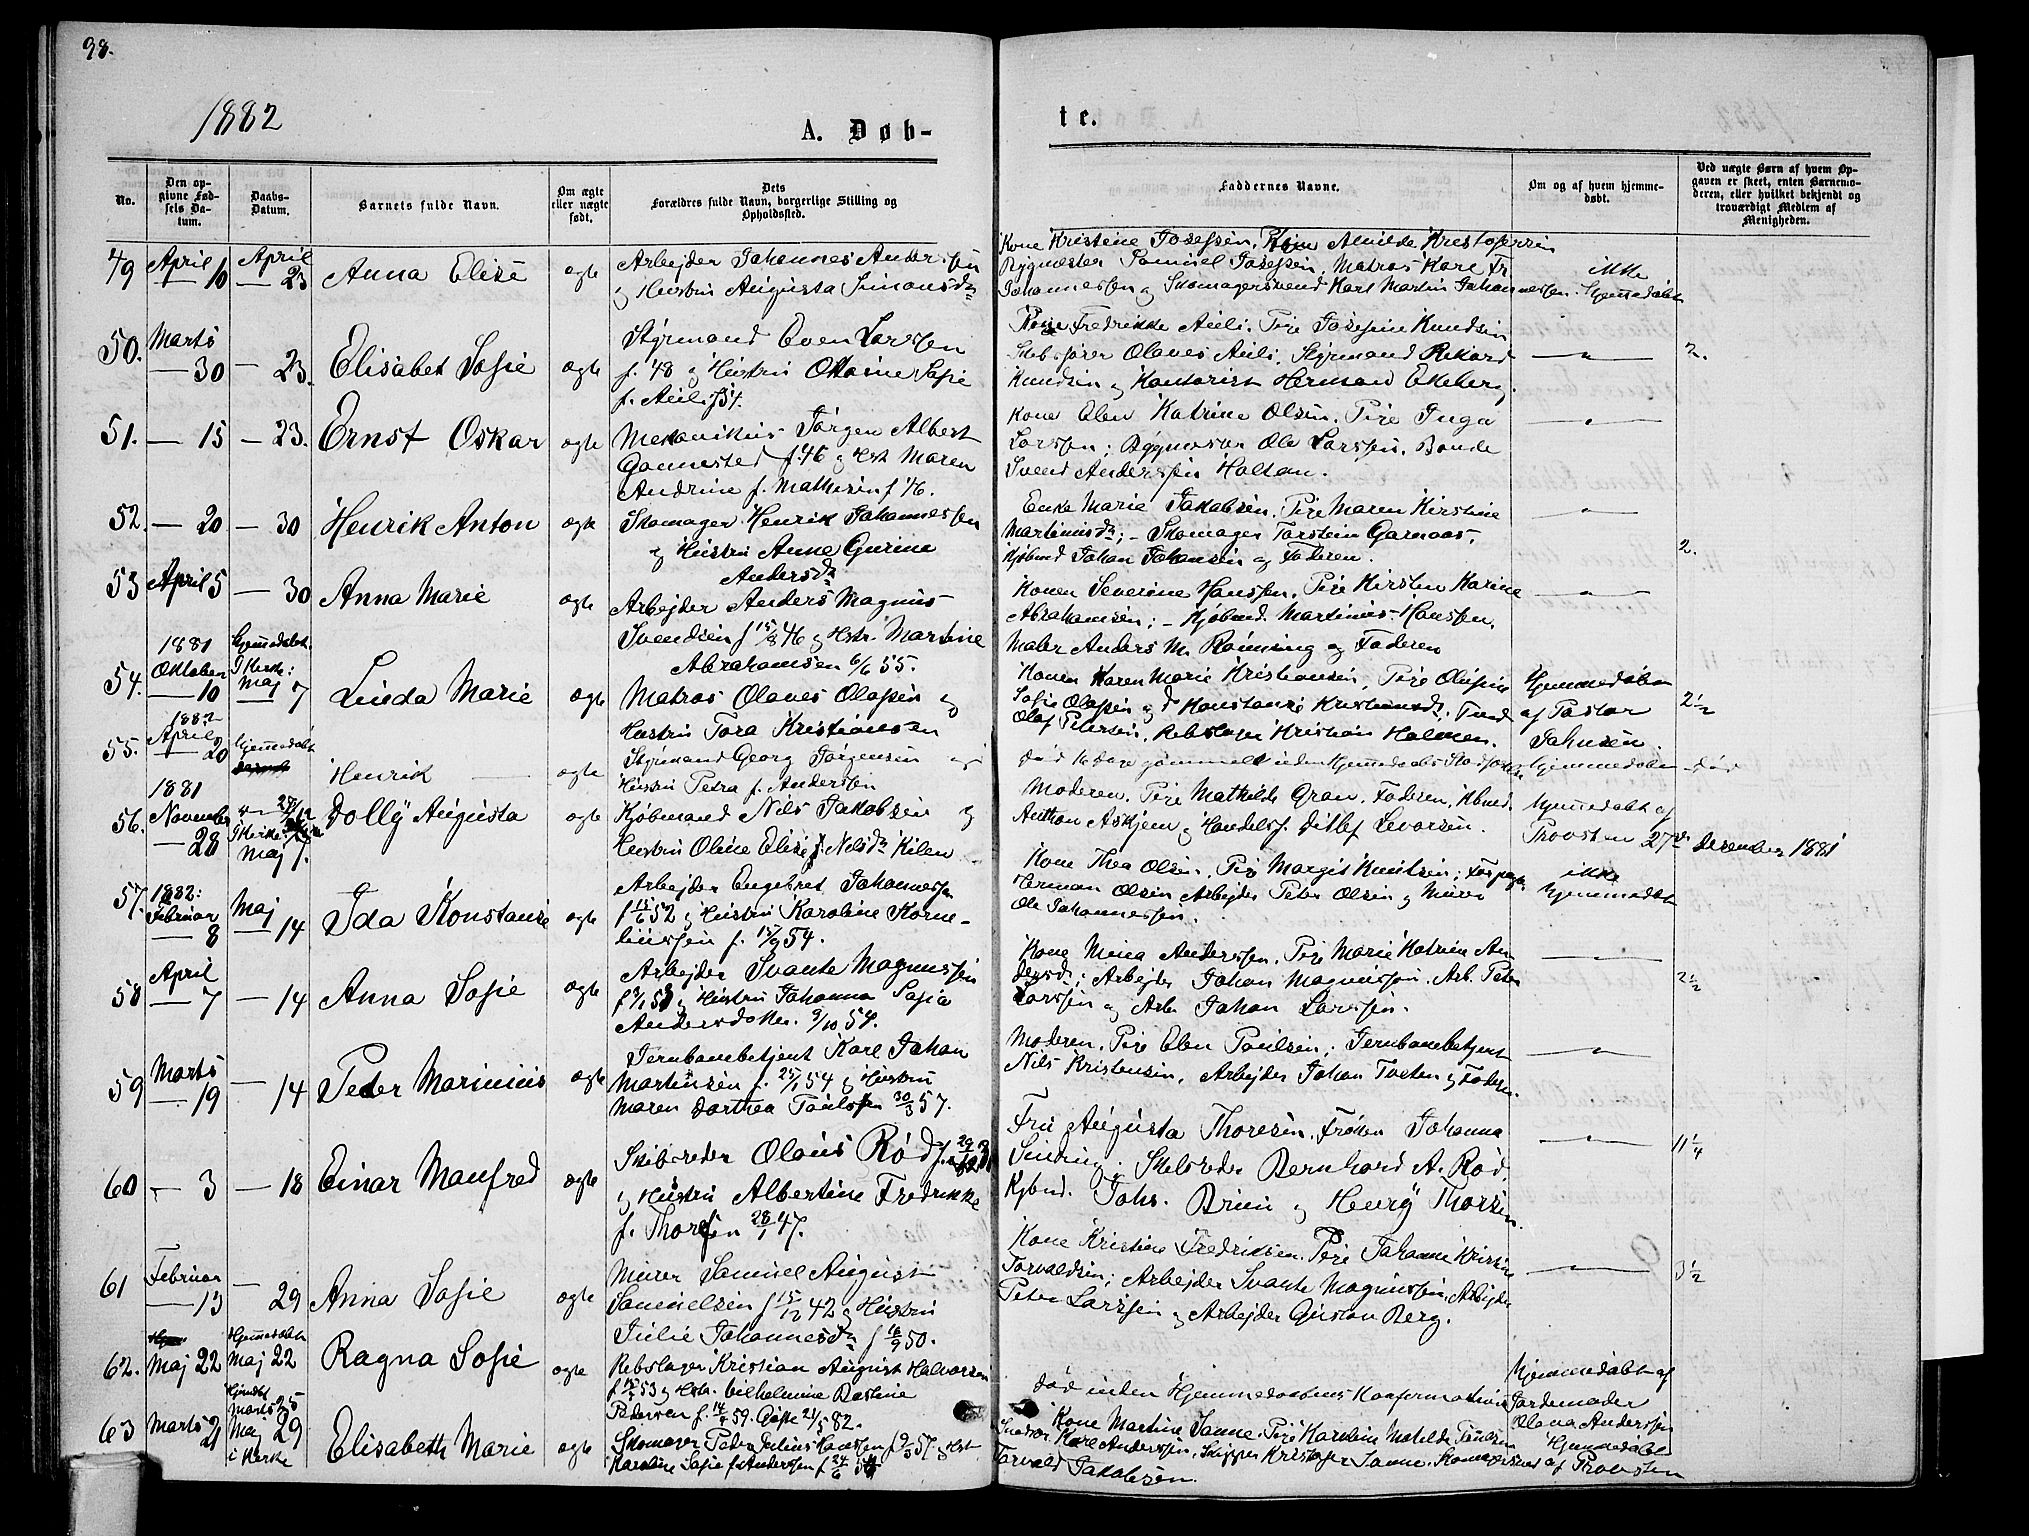 98.
1882
A. Døb-
te.
No.
Den op-
givne Fød-
sels Da-
tum.
Daabs-
Datum.
Barnets fulde Navn.
Om ægte
eller uægte
født.
Dets
Forældres fulde Navn, borgerlige Stilling og
Opholdssted.
Faddernes Navne.
Om og af hvem hjemme-
døbt.
Ved uægte Børn af hvem Op-
gaven er skeet, enten Barnemo-
deren, eller hvilket bekjendt og
troværdigt Medlem af
Menigheden.
49 April 10 April 23 Anna Elise ægte
Arbejder Johannes Andersen
og Hustru Augusta Simonsdr
Kone Kristine Josefsen, Alvilde Kristofersen
Bygmester Samuel Josefsen, Matros Karl Fr.
Johannessen og Skomagersvend Karl Martin Johannessen.
ikke
hjemmedøbt
50. Marts 30 — 23. Elisabet Sofie ægte
Styrmand Even Larssen
f. 48 og Hustru Ottomine Sofie
f. Auli f 54.
Fredrikke Auli, Pige Josefine Knudsen
Skibsfører Olaves Auli, Styrmand Rikard
Knudsen og Kontorist Herman Ekeberg.
— " — 2.
51. — 15 — 23. Ernst Oskar ægte
Mekanikus Jørgen Albert
Gonnested f. 46 og Hst Maren
Andrine f. Mathesen f 46.
Kone Elen Katrine Olsen, Pige Inga
Larssen; Bygmester Ole Larssen, Bonde
Svend Anderssen Holtan.
— " —
52. — 20 — 30 Henrik Anton ægte
Skomager Henrik Johannessen
og Hustru Anne Gurine
Andersdr
Enke Marie Jakobsen, Pige Maren Kirstine
Martinusdr; – Skomager Torstein Garnaas,
Kjøbmd Johan Johansen og Faderen.
— " — 2.
53 April 5 — 30 Anna Marie ægte
Arbejder Anders Magnus
Svendsen f 15/8 46 og Hstr. Martine
Abrahamsen 6/6 55.
Konen Severine Hanssen, Pige Kirsten Karine
Abrahamsen; – Kjøbmd. Martinus Hanssen,
Maler Anders M. Rønning og Faderen
— " —
54. 1881 Oktober 10 Hjemmedøbt. I Kirke: Maj 7 Linda Marie ægte
Matros Olaves Olafsen og
Hustru Tora Kristiansen
Konen Karen Marie Kristiansen, Pige
Sofie Olafsen og Konstanse Kristiansdr.
Olaf Petersen, Rebslager Kristian Holmen.
Hjemmedøbt
af Pastor
Jahnsen.
2 1/2
55. 1882 April 20 hjemmedøbt Henrik — ægte
Styrmand Georg Jørgensen og
Hustru Petra f. Anderssen
død 16 Dage gammel uden Hjemmedaabs
Hjemmedøbt død
56. 1881 November 28 I Kirke: Maj 7. Dolly Augusta ægte
Kjøbmand Nils Jakobsen og
Hustru Oline Elise f. Nilsdr Kilen
Moderen, Pige Mathilde Gran, Faderen, Kbmd.
Anthon Askjem og Handelsf. Ditlef Sevorsen.
hjemmedøbt af
Provsten 27de desember 1881
57. 1882: Februar 8 Maj 14 Ida Konstanse ægte
Arbejder Engebret Johannessen
f 15/6 52 og Hustru Karoline Korne-
liussen f. 15/9 54.
Kone Thea Olsen, Pige Margit Knutsen;
Herman Olsen Arbejder Peter Olsen og Murer
Ole Johannessen.
ikke
hjemmedøbt
58 April 7 — 14 Anna Sofie ægte
Arbejder Svante Magnussen
og Hustru Johanna Sofia
Andersdotter. 9/10 54.
Kone Mina Anderssen, Pige Marie Katrine An-
dersdr; Arbejder Johan Magnussen, Arb. Peter
Larssen og Arb Johan Larssen.
— " — 2 1/2
59 Marts 19 — 14 Peder Marinius ægte
Jernbanebetjent Karl Johan
Martinsen f. 25/1 54 og Hustru
Maren Dorthea Paulsen 30/3 57.
Moderen, Pige Elen Paulsen; Jernbanebetjent
Nils Kristensen, Arbejder Johan Tveten og Faderen.
— " —
60 — 3 — 18 Einar Manfred ægte
Skibsreder Olaus Rød
og Hustru Albertine Fredrikke
f. Thoresen 28/1 47.
Fru Augusta Thoresen, Frøken Johanna
Sinding. Skibsreder Bernhard A. Rød,
Kjbmd. Johs. Bruu og Henry Thoresen.
— " — 11 1/4
61 Februar 13 — 29 Anna Sofie ægte
Murer Samuel August
Samuelsen f 15/12 42 og Hustru
Julie Johannesdr f 16/9 50.
Kone Kristine Fredriksen, Pige Johanne
Torvaldsen; Arbejder Svante Magnussen, Arbejder
Peter Larssen og Arbejder Gustav Berg.
— " — 3 1/2
62. Maj 22 Hjemmedøbt Maj 22 Ragna Sofie ægte
Rebslager Kristian August Halvorsen
53 og Hstr. Vilhelmine Bastine
Pedersen f. 14/9 59. Gifte 21/5 82.
død inden Hjemmedaabens Konfirmation
Hjemmedøbt af
Jordemoder
Olava Anderssen
63 Marts 21 Hjemdbt Marts 25 Maj 29 i Kirke Elisabeth Marie ægte
Skomager Peter Julius Hanssen f 9/3 57. og Hst
Karoline Sofie f. Anderssen f 24/6
Kone Martine Sanne, Pige Karoline Matilde Paulsen
Karl Anderssen, Skipper Kristofer Sanne, Skomagersvend
Torvald Jakobsen.
Hjemmedøbt
af Provsten